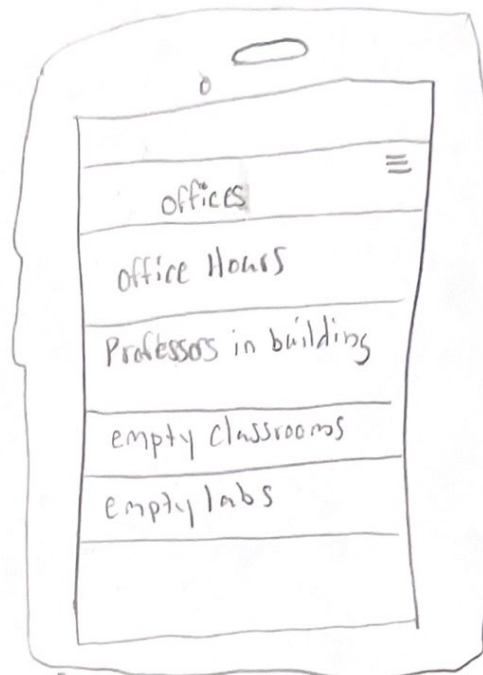 offices
office Hours
Professors in building
empty classrooms
empty labs